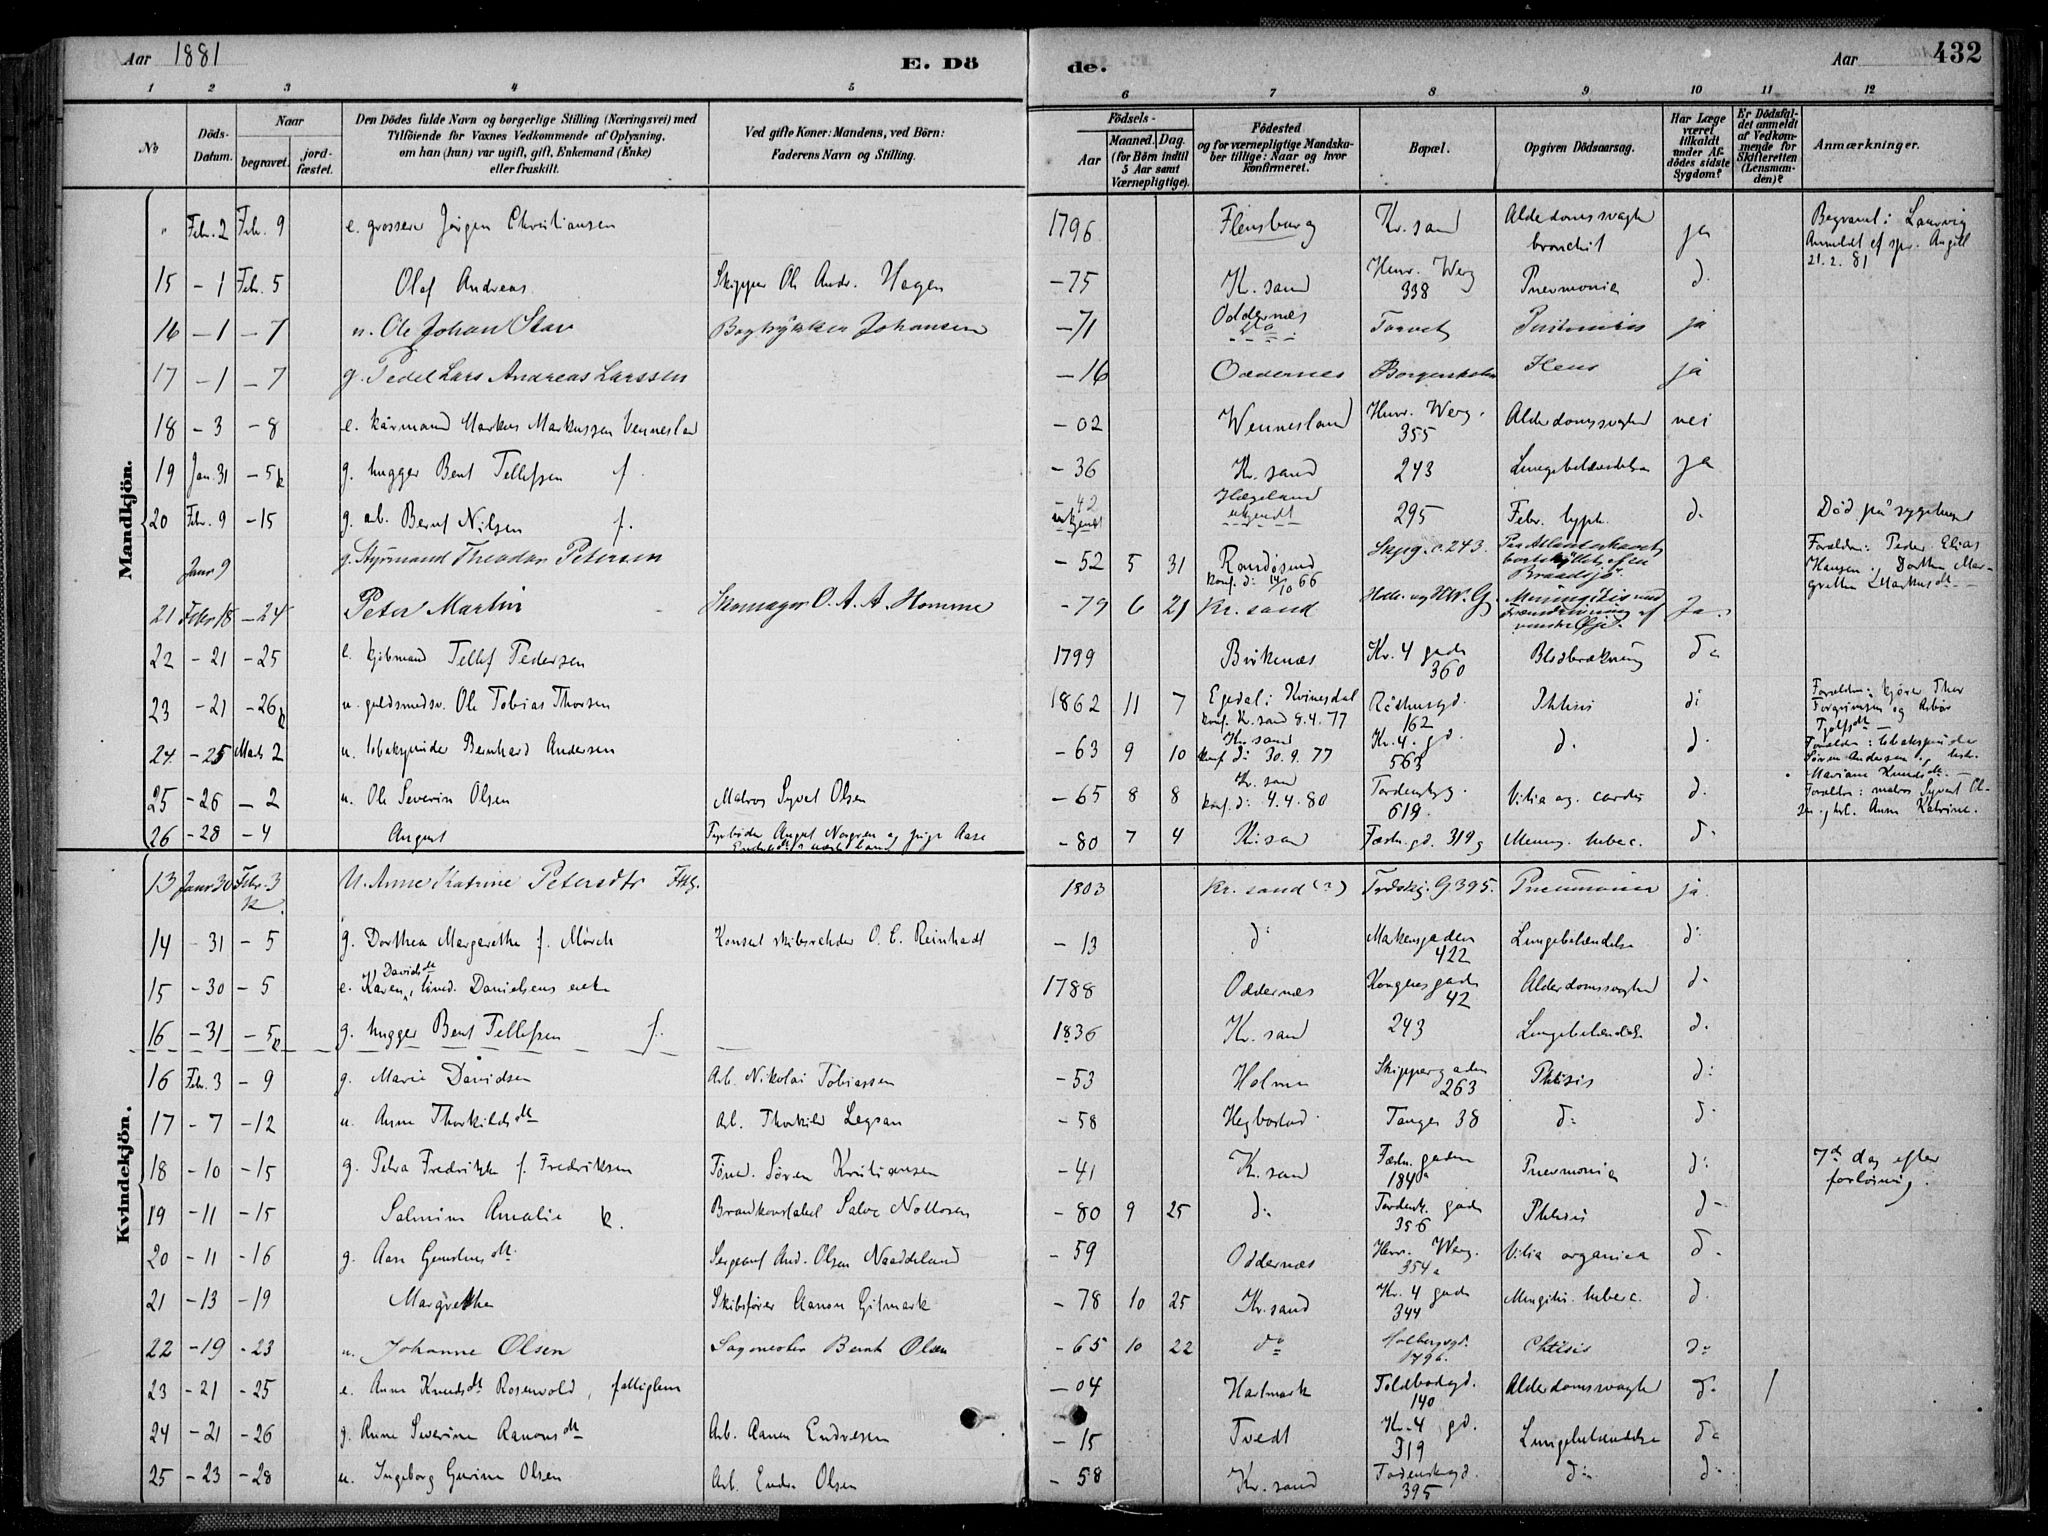 Aar 1881
E. Dö
de.
Aar
432
1 2 3 4 5 6 7 8 9 10 11 12
No
Döds-Datum.
Naar
begravet.
jord-fæstet.
Den Dödes fulde Navn og borgerlige Stilling (Næringsvei) med
Tilföiende for Voxnes Vedkommende af Oplysning,
om han (hun) var ugift, gift, Enkemand (Enke)
eller fraskilt.
Ved gifte Koner: Mandens, ved Börn:
Faderens Navn og Stilling.
Födsels-
Aar
Maaned. Dag.
(for Börn indtil
5 Aar samt
Værnepligtige).
Födested
og for værnepligtige Mandska-
ber tillige: Naar og hvor
konfirmeret.
Bopæl.
Opgiven Dödsaarsag.
Har Læge
været
tilkaldt
under Af-
dödes sidste
Sygdom?
Er Dödsfal-
det anmeldt
af Vedkom-
mende for
Skifteretten
(Lensman-
den)?
Anmærkninger.
Mandkjön.
" Febr. 2 Febr. 9 e. grosserer Jørgen Christiansen 1796 Flensburg Kr. sand Alderdomssvaghed bronchit ja Begravet i Laurvig
21.2.81
15 – 1 Febr. 5 Olaf Andreas Skipper Ole Andr. Hagen – 75 Kr. sand Henr. Werg 338 Pneumonia d:
16 – 1 – 7 u. Ole Johan Stav Bogtrykker Johansen – 71 Oddernæs Torvet ja
17 – 1 – 7 g. Pedel Lars Andreas Larssen – 16 Oddernes ja
18 – 3 – 8 e. kårmand Markus Markussen Vennesland – 02 Wennesland Henr. Werg. 355 Alderdomssvaghed nei
19 Jan. 31 – 5 k g. hugger Bent Tellefsen f. – 36 Kr. sand 243 Lungebetændelse ja
20 Febr. 9 – 15 g. arb. Bernt Nilsen f. – 42 ukjendt Hægeland ukjendt 295 Febr. typh. d. Död på sygehuset
Janr 9 g. Styrmand Theodor Petersen – 52 5 31 Randøsund konf. d: 14/10 66 Skipg. 243. Paa Atlanterhavet bortskyllet af en Braadsjø. Forældre: Peder Elias Hansen, Dorthea Margrethe Markusdt.
21 Febr 18 – 24 Peter Martin Skomager O. A. A. Homme – 79 6 21 Kr. sand Ja
22 – 21 – 25 e. kjöbmand Tellef Pedersen 1799 Birkenæs Kr. 4 gade 360 Blodbrækning d:
23 – 21 – 26 k u. guldsmedsv. Ole Tobias Thorsen 1862 11 7 Egedal i Kvinesdal konf. Kr. sand 8.4.77 Rådhusgd. 162 Phtisis d:
24 – 25 Mads 2 u. tobakspinder Bernhard Andersen – 63 9 10 Kr. sand konf d: 30.9.77 Kr. 4. gd. 563 d. d. Forældre: tobakspinder Sören Andersen Mariane Knudsdt.
25 – 26 – 2 u. Ole Severin Olsen Matros Syvert Olsen – 65 8 8 Kr. sand konf. d: 9.4.80 Tordenskg. 619. Vitia og. cordis d. Forældre: matros Syvert Olsen, Anne Katrine.
26 – 28 – 4 August Fyrböder August Norgren og pige Aase – 80 7 4 Kr. sand Fæstn. gd. 319 g Mening. tuberc. d:
Kvindekjön.
13 Janr 30 Febr. 3 k. U. Anne Katrine Petersdtr 1803 Kr. sand (?) 395. Pneumonia ja
14 – 31 – 5 g. Dorthea Margarethe f. Mörch Konsul skibsrheder O. C. Reinhardt – 13 d: Markensgaden 422 Lungebetændelse d:
15 – 30 – 5 e. Karen Davidsdt, Danielsens enke 1788 Oddernæs Kongensgade 42 Alderdomssvaghed d:
16 – 31 – 5 k g. hugger Bent Tellefsen f. 1836 Kr. sand 243 Lungebetændelse d.
16 Febr. 3 – 9 g. Marie Davidsen Arb. Nikolai Tobiassen – 53 Holme Skippergaden 263 Phtisis d:
17 – 7 – 12 u. Anne Thorkildsdt Arb. Thorkild Legran – 58 Hegbostad Tangen 38 d: d:
18 – 10 – 15 g. Petra Fredrikke f. Fredriksen Töm. Sören Kristiansen – 41 Kr. sand Fæstn. gaden 184 a Pneumonia d: 7de dag efter forløsning.
19 – 11 – 15 Salmine Amalie k. Brandkonstabel Salve Nottosen – 80 9 25 d: Tordensk. gade 356 Phtisis d:
20 – 11 – 16 g. Aase Sergeant And. Olsen Naaddeland – 59 Oddernæs Henr. Werg. 354 a Vitia organica d.
21 – 13 – 19 Margrethe Skibsfører Aanon Gitmark – 78 10 25 Kr. sand Kr. 4 gade 344 Mengitis. tuberc. d.
22 – 19 – 23 u. Johanne Olsen Sagmester Bernt Olsen – 65 10 22 do Holbergsgd. 179 b. Phtisis d:
23 – 21 – 25 e. Anne Knudsdt Rosenvold, fattiglem – 04 Hartmark Toldbodgd. 140 Alderdomssvaghed d. /
24 – 21 – 26 g. Anne Severine Aanonsdt Arb. Aanen Endresen – 15 Tvedt Kr. 4 gd. 319 Lungebetændelse d:
25 – 23 – 28 u. Ingeborg Gurine Olsen Arb. Endre Olsen – 58 Kr. sand Tordenskgd. 395 d: d: